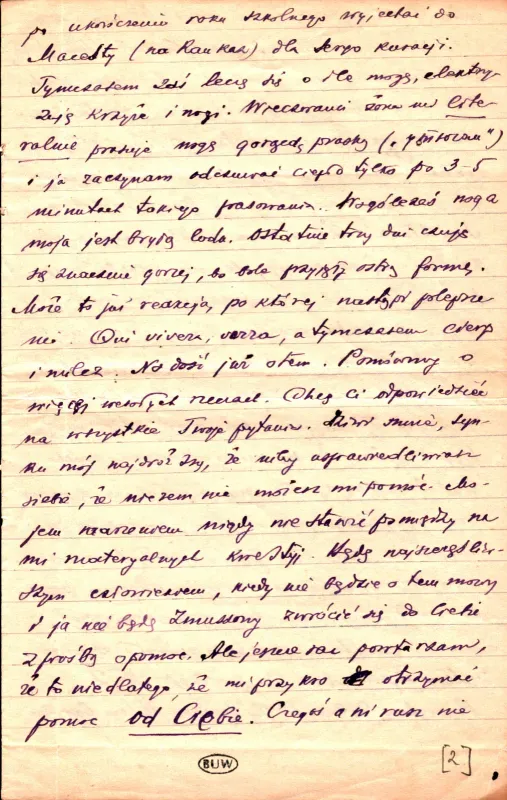 po ukończeniu roku szkolnego wyjechać do
Macesty (na Kaukaz) dla tego kuracji.
Tymczasem zaś leczę się o ile mogę, elektry-
zują krzyże i nogi. Wieczorami żona mi lite-
ralnie prasuje nogę gorącą praską ("
i ja zaczynam odczuwać ciepło tylko po 3-5
minutach takiego prasowania.. Wogóle zaś noga
moja jest bryłą lodu. Ostatnie trzy dni czuję
się znacznie gorzej, bo bóle przyjęły ostrą formę.
Może to jaś reakcja, po której nastąpi polepsze
nie. Qui vivera, verra, a tymczasem cierp
i milcz. No dość już o tem. Pomówmy o
więcej wesołych rzeczach. Chcę ci odpowiedzieć
na wszystkie Twoje pytania. Dziwi mnie, syn-
ku mój najdroższy, że niby usprawiedliwiasz
siebie, że niczem nie możesz mi pomóc. Mo-
jem marzeniem nigdy nie stawić pomiędzy na
mi materyalnych kwestyj. Będę najszczęśliw-
szym człowiekiem, kiedy nie będzie o tem mowy
i ja nie będę zmuszony zwrócić się do Ciebie
z prośbą o pomoc. Ale jeszcze raz powtarzam,
że to nie dlatego, że mi przykro otrzymać
pomoc od Ciebie. Czegoś ani razu nie
BUW
[2]